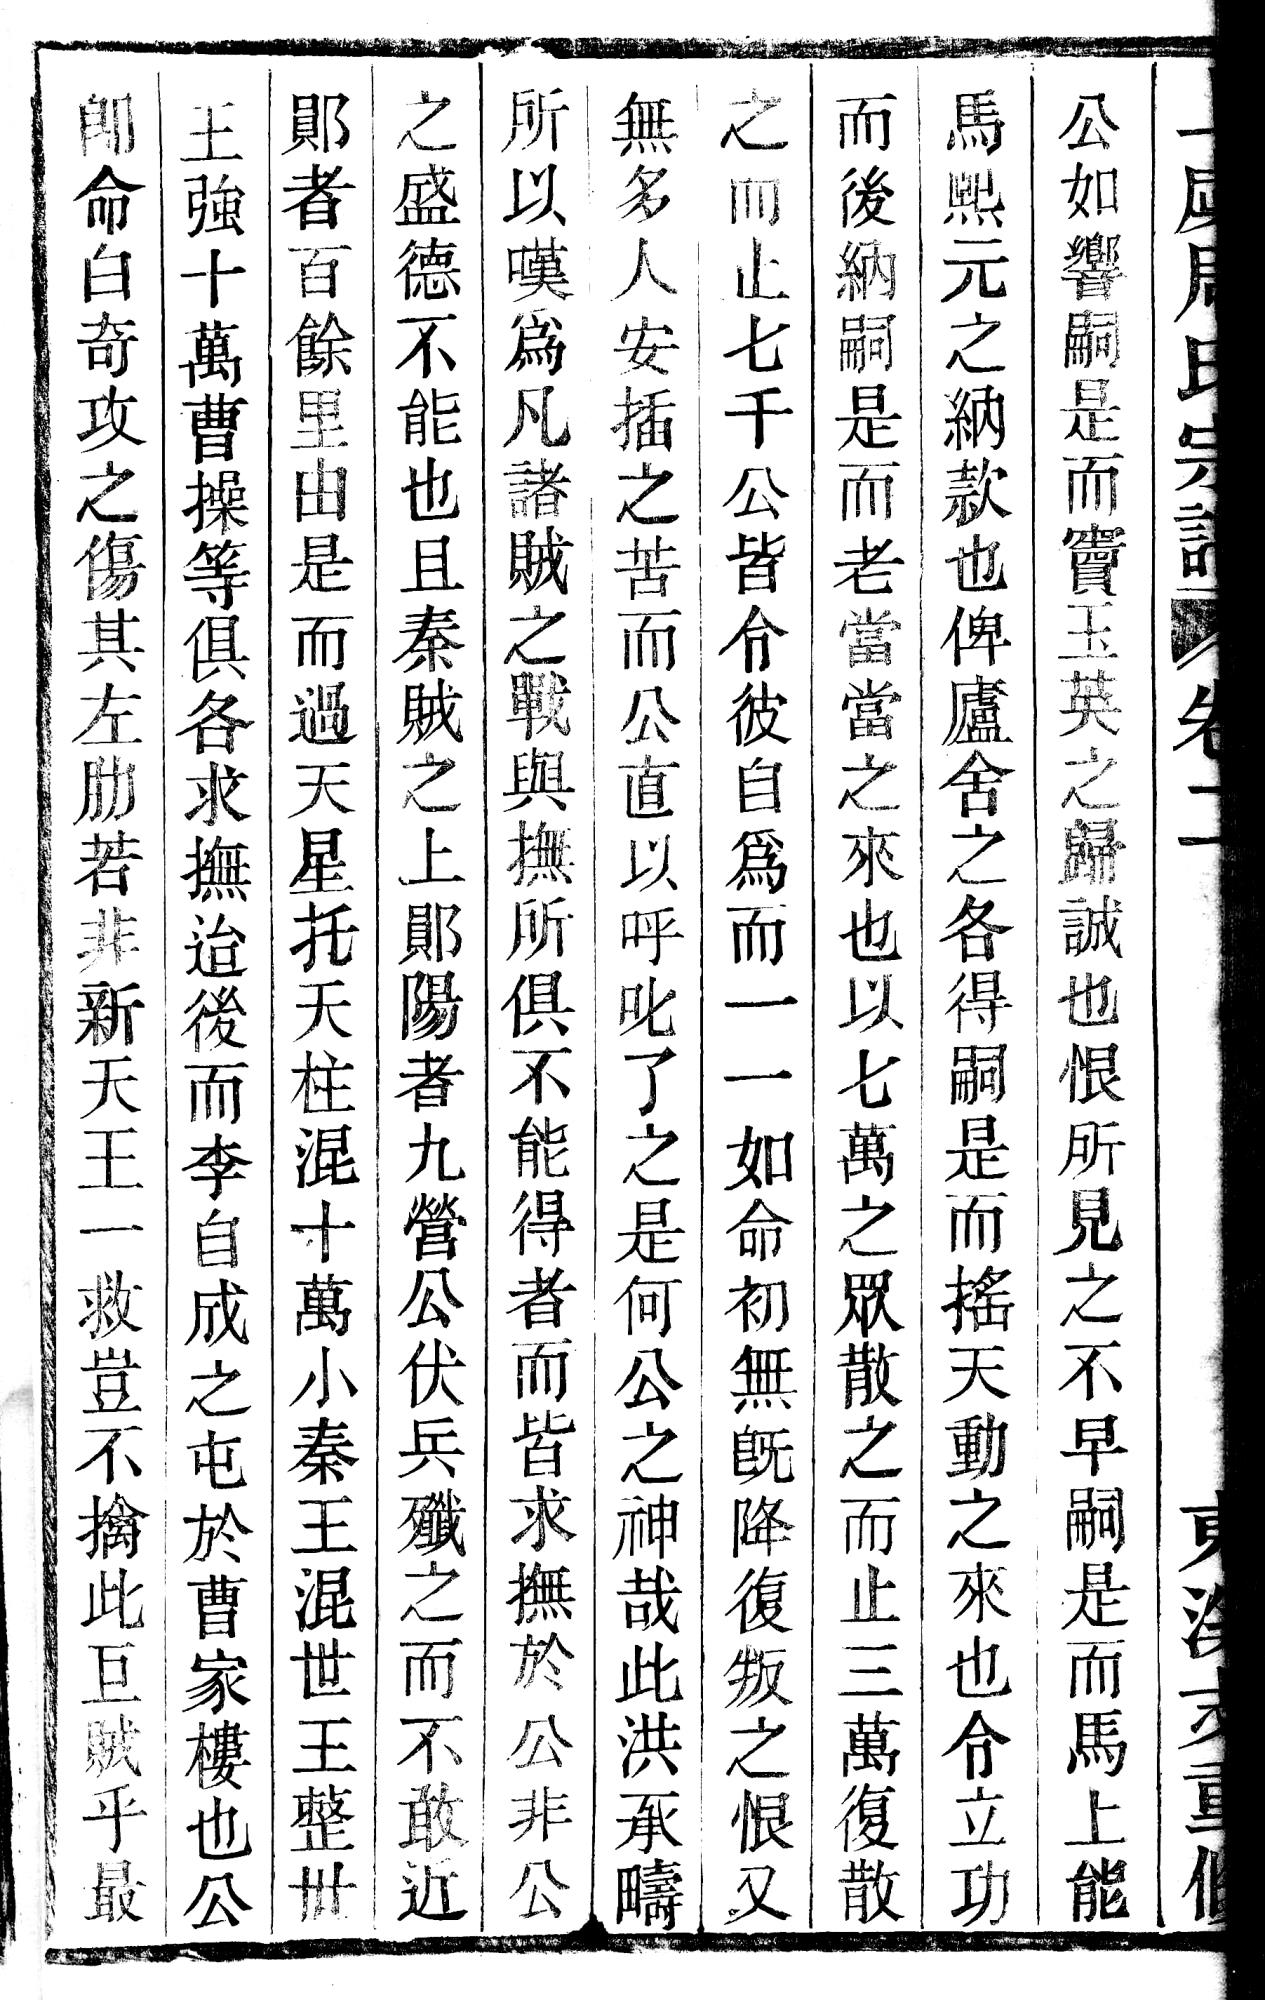 氏宗譜 卷二 重修
公如響嗣是而竇玉英之歸誠也恨所見之不早嗣是而馬上能
馬熙元之納款也俾廬舍之各得嗣是而搖天動之來也令立功
而後納嗣是而老當當之來也以七萬之眾散之而止三萬復散
之而止七千公皆令彼自爲而一一如命初無旣降復叛之恨又
無多人安插之苦而公直以呼叱了之是何公之神哉此洪承疇
所以嘆爲凡諸賊之戰與撫所俱不能得者而皆求撫於公非公
之盛德不能也且秦賊之上鄖陽者九營公伏兵殲之而不敢近
鄖者百餘里由是而過天星托天柱混十萬小秦王混世王整世
王強十萬曹操等俱各求撫迨後而李自成之屯於曹家樓也公
卽命白奇攻之傷其左肋若非新天王一救豈不擒此巨賊乎最